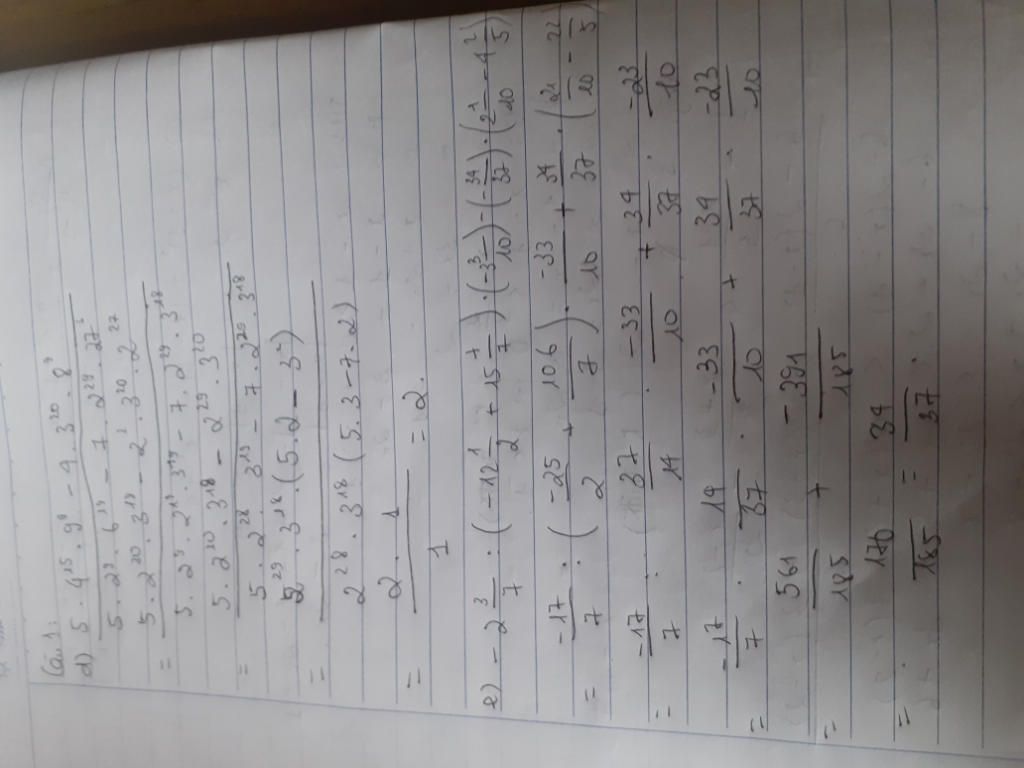 Câu 1:
d) 5 . 4¹⁵ . 9⁹ - 4 . 3²⁰ . 8⁹
5 . 2⁹ . 6¹⁹ - 7 . 2²⁹ . 27⁶
= 5 . 2³⁰ . 3¹⁹ - 2² . 3²⁰ . 2²⁷
5 . 2⁹ . 2¹⁹ . 3¹⁹ - 7 . 2²⁹ . 3¹⁸
= 5 . 2³⁰ . 3¹⁸ - 2²⁹ . 3²⁰
5 . 2²⁸ . 3¹⁹ - 7 . 2²⁹ . 3¹⁸
= 2²⁹ . 3¹⁸ . (5 . 2 - 3²)
2²⁸ . 3¹⁸ (5 . 3 - 7 . 2)
= 2 . 1 = 2.
1
e) -2 3/7 . (-12 1/2 + 15 1/7) . (-3 3/10) - (-34/37) . (2 1/10 - 4 2/5)
= -17/7 . (-25/2 + 106/7) . -33/10 + 34/37 . (21/10 - 22/5)
= -17/7 . 37/14 . -33/10 + 34/37 . -23/10
= -17/7 . 14/37 . -33/10 + 34/37 . -23/10
= 561/185 + -391/185
= 170/185 = 34/37.